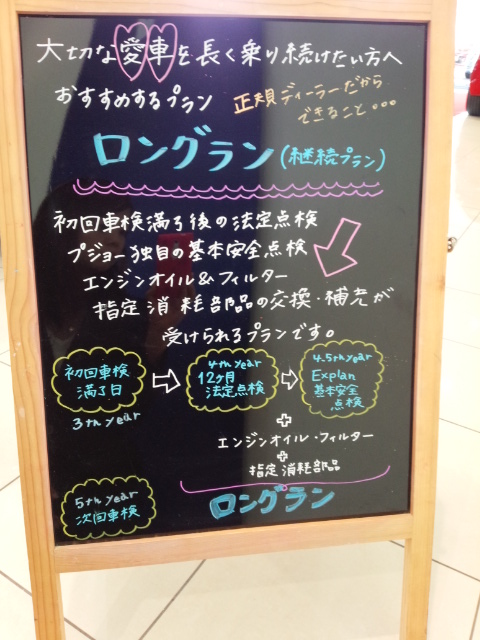 大切な愛車を長く乗り続けたい方へ
おすすめするプラン
正規ディーラーだから
できること・・・
ロングラン(継続プラン)
初回車検満了後の法定点検
プジョー独自の基本安全点検
エンジンオイル&フィルター
指定消耗部品の交換・補充が
受けられるプランです。
初回車検
満了日
3th year
4th year
12ヶ月
法定点検
4.5th year
Explan
基本安全
点検
+
エンジンオイル・フィルター
+
指定消耗部品
ロングラン
5th year
次回車検